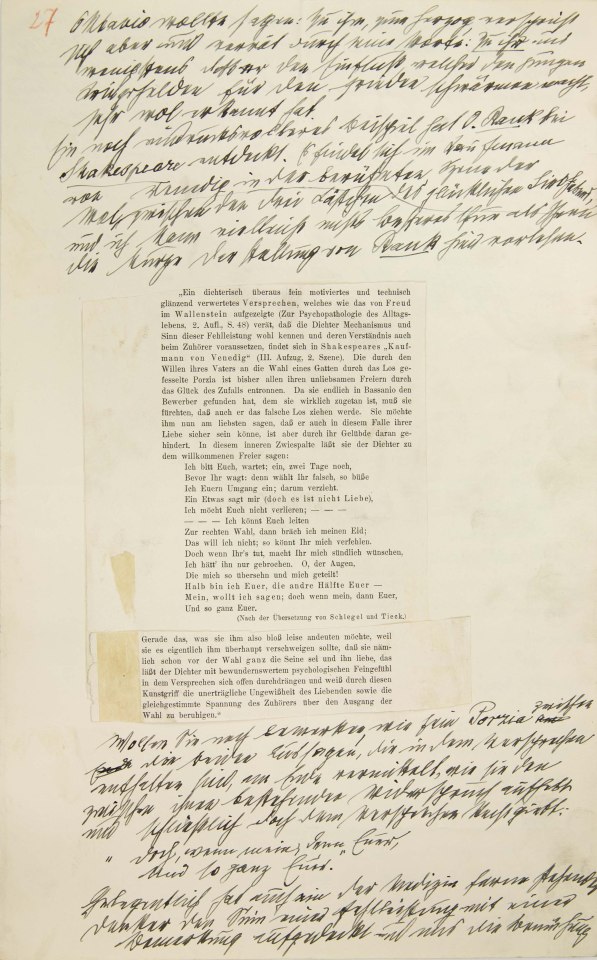 27
Oktavio wollte sagen: Zu ihm, zum Herzog, verspricht
sich aber und verrät durch seine Worte: zu ihr uns
wenigstens daß er den Einfluß welcher den jungen
Kriegshelden für den Frieden schwärmen macht,
sehr wol erkannt hat.
Ein noch eindrucksvolleres Beispiel hat O. Rank bei
Shakespeare entdeckt. Es findet sich im Kaufmann
von Venedig in der berühmten Szene der
Wahl zwischen den drei Kästchen des glücklichen Liebhabers,
und ich kann vielleicht nichts besseres thun als Ihnen
die kurze Darstellung von Rank hier vorlesen.
„Ein dichterisch überaus fein motiviertes und technisch
glänzend verwertetes Versprechen, welches wie das von Freud
im Wallenstein aufgezeigte (Zur Psychopathologie des Alltags-
lebens, 2. Aufl., S. 48) verät, daß die Dichter Mechanismus und
Sinn dieser Fehlleistung wohl kennen und deren Verständnis auch
beim Zuhörer voraussetzen, findet sich in Shakespeares „Kauf-
mann von Venedig“ (III. Aufzug, 2. Szene). Die durch den
Willen ihres Vaters an die Wahl eines Gatten durch das Los ge-
fesselte Porzia ist bisher allen ihren unliebsamen Freiern durch
das Glück des Zufalls entronnen. Da sie endlich in Bassanio den
Bewerber gefunden hat, dem sie wirklich zugetan ist, muß sie
fürchten, daß auch er das falsche Los ziehen werde. Sie möchte
ihm nun am liebsten sagen, daß er auch in diesem Falle ihrer
Liebe sicher sein könne, ist aber durch ihr Gelübde daran ge-
hindert. In diesem inneren Zwiespalte läßt sie der Dichter zu
dem willkommenen Freier sagen:
Ich bitt Euch, wartet; ein, zwei Tage noch,
Bevor Ihr wagt: denn wählt Ihr falsch, so büße
Ich Euern Umgang ein; darum verzieht.
Ein Etwas sagt mir (doch es ist nicht Liebe),
Ich möcht Euch nicht verlieren; — — —
— — — Ich könnt Euch leiten
Zur rechten Wahl, dann bräch ich meinen Eid;
Das will ich nicht; so könnt Ihr mich verfehlen.
Doch wenn Ihr's tut, macht Ihr mich sündlich wünschen,
Ich hätt' ihn nur gebrochen. O, der Augen,
Die mich so übersehn und mich geteilt!
Halb bin ich Euer, die andre Hälfte Euer —
Mein, wollt ich sagen; doch wenn mein, dann Euer,
Und so ganz Euer.
(Nach der Übersetzung von Schlegel und Tieck.)
Gerade das, was sie ihm also bloß leise andeuten möchte, weil
sie es eigentlich ihm überhaupt verschweigen sollte, daß sie näm-
lich schon vor der Wahl ganz die Seine sei und ihn liebe, das
läßt der Dichter mit bewundernswertem psychologischen Feingefühl
in dem Versprechen sich offen durchdrängen und weiß durch diesen
Kunstgriff die unerträgliche Ungewißheit des Liebenden sowie die
gleichgestimmte Spannung des Zuhörers über den Ausgang der
Wahl zu beruhigen.“
Wollen Sie noch bemerken, wie fein Porzia zwischen
den beiden Aussagen, die in dem Versprechen
enthalten sind, am Ende vermittelt, wie sie den
zwischen ihnen bestehenden Widerspruch aufhebt
und schließlich doch dem Versprechen Recht giebt:
„Doch, wenn mein, dann Euer,
Und so ganz Euer.“
Gelegentlich hat auch ein der Medizin ferne stehender
Denker den Sinn einer Fehlleistung mit einer
Bemerkung aufgedeckt und uns die Bemühung